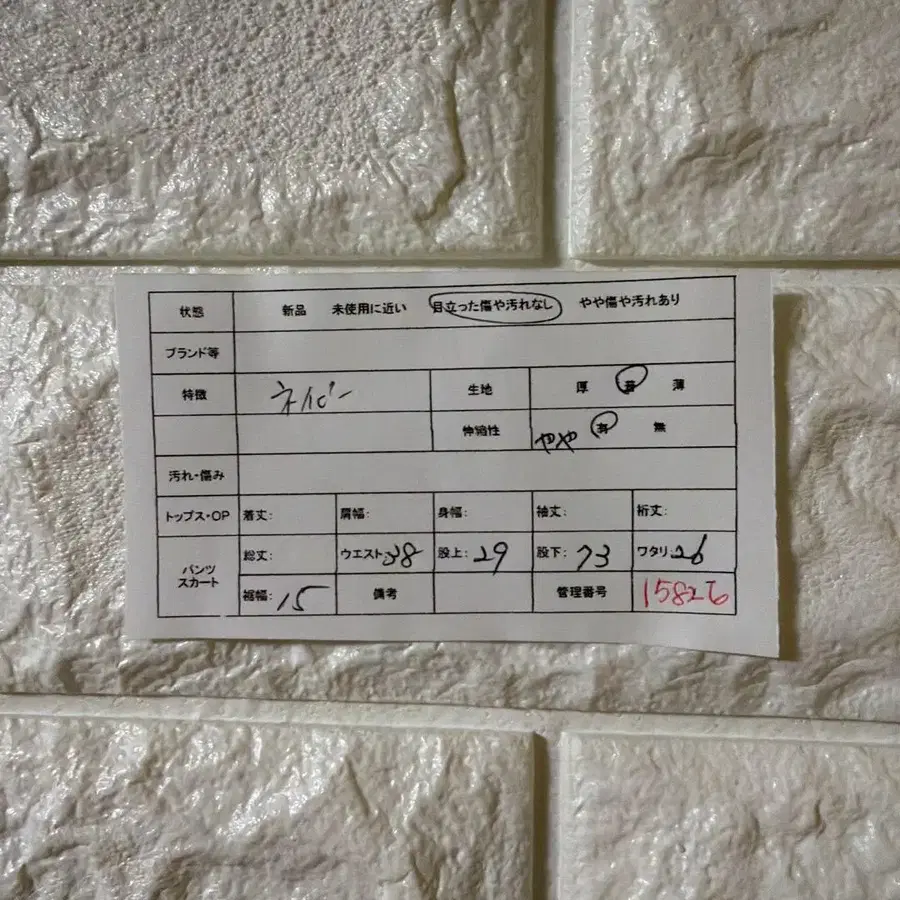 状態 新品 未使用に近い 目立った傷や汚れなし やや傷や汚れあり
ブランド等
特徴 ネイビー 生地 厚 普 薄
伸縮性 やや 有 無
汚れ・傷み
トップス・OP 着丈: 肩幅: 身幅: 袖丈: 裄丈:
パンツ スカート 総丈: ウエスト:38 股上:29 股下:73 ワタリ:26
裾幅:15 備考 管理番号 15826